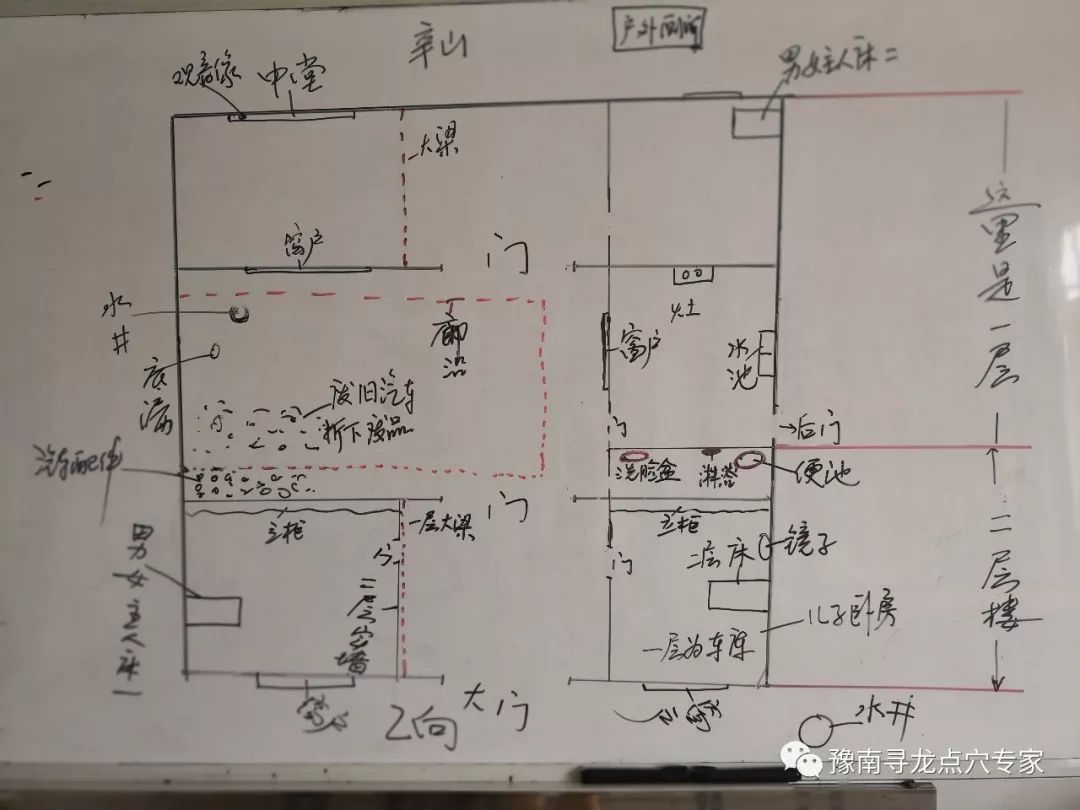 辛山
户外厕所
观音像
中堂
男女主人床二
大梁
窗户
门
水井
底漏
廊沿
灶
窗户
水池
这里是一层
废旧汽车
拆下废品
门
→后门
汽车配件
洗脸盆
淋浴
便池
门
立柜
一层大梁
立柜
镜子
门
二层床
男女主人床一
门
二层宗墙
儿子卧房
一层为车库
二层楼
窗户
乙向
大门
窗
水井
豫南寻龙点穴专家